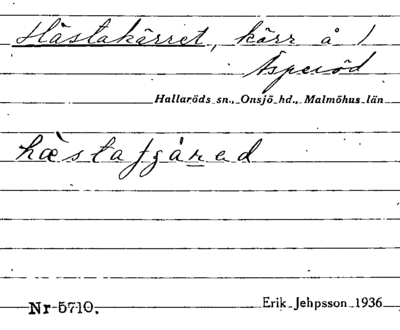 Hästakärret, kärr å 1
Äsperöd
Hallaröds sn., Onsjö hd., Malmöhus län
Nr 5710.
Erik Jehpsson 1936